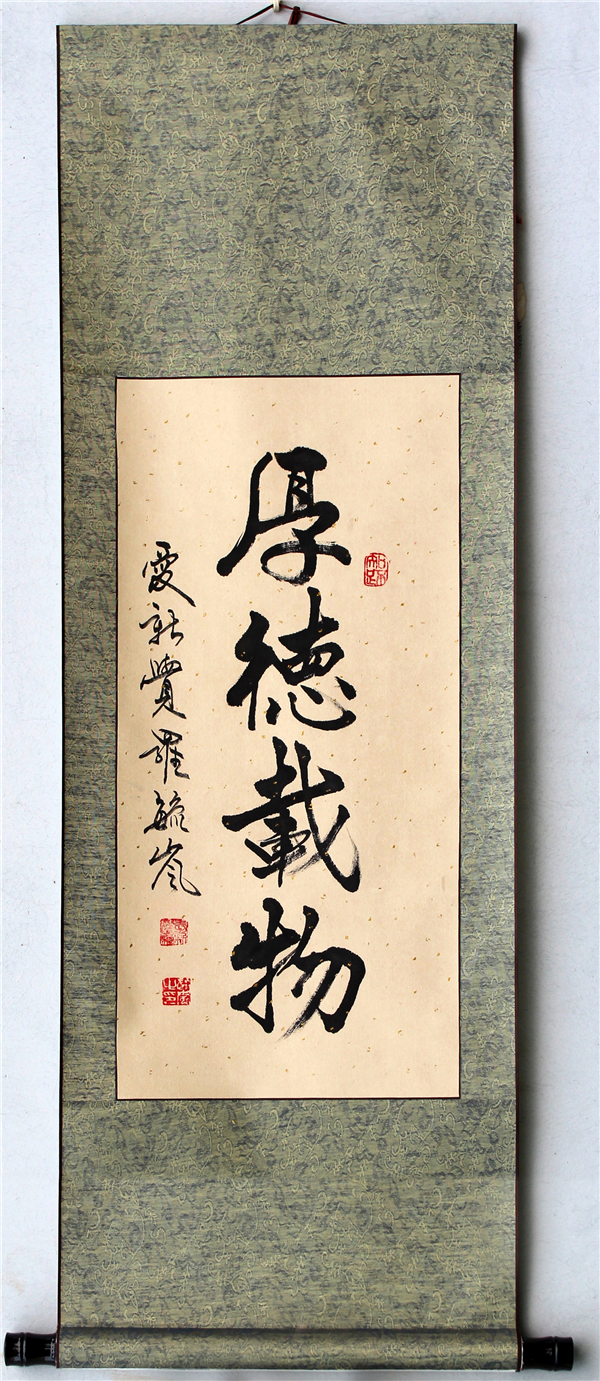 厚德載物
愛新覺羅毓嵐